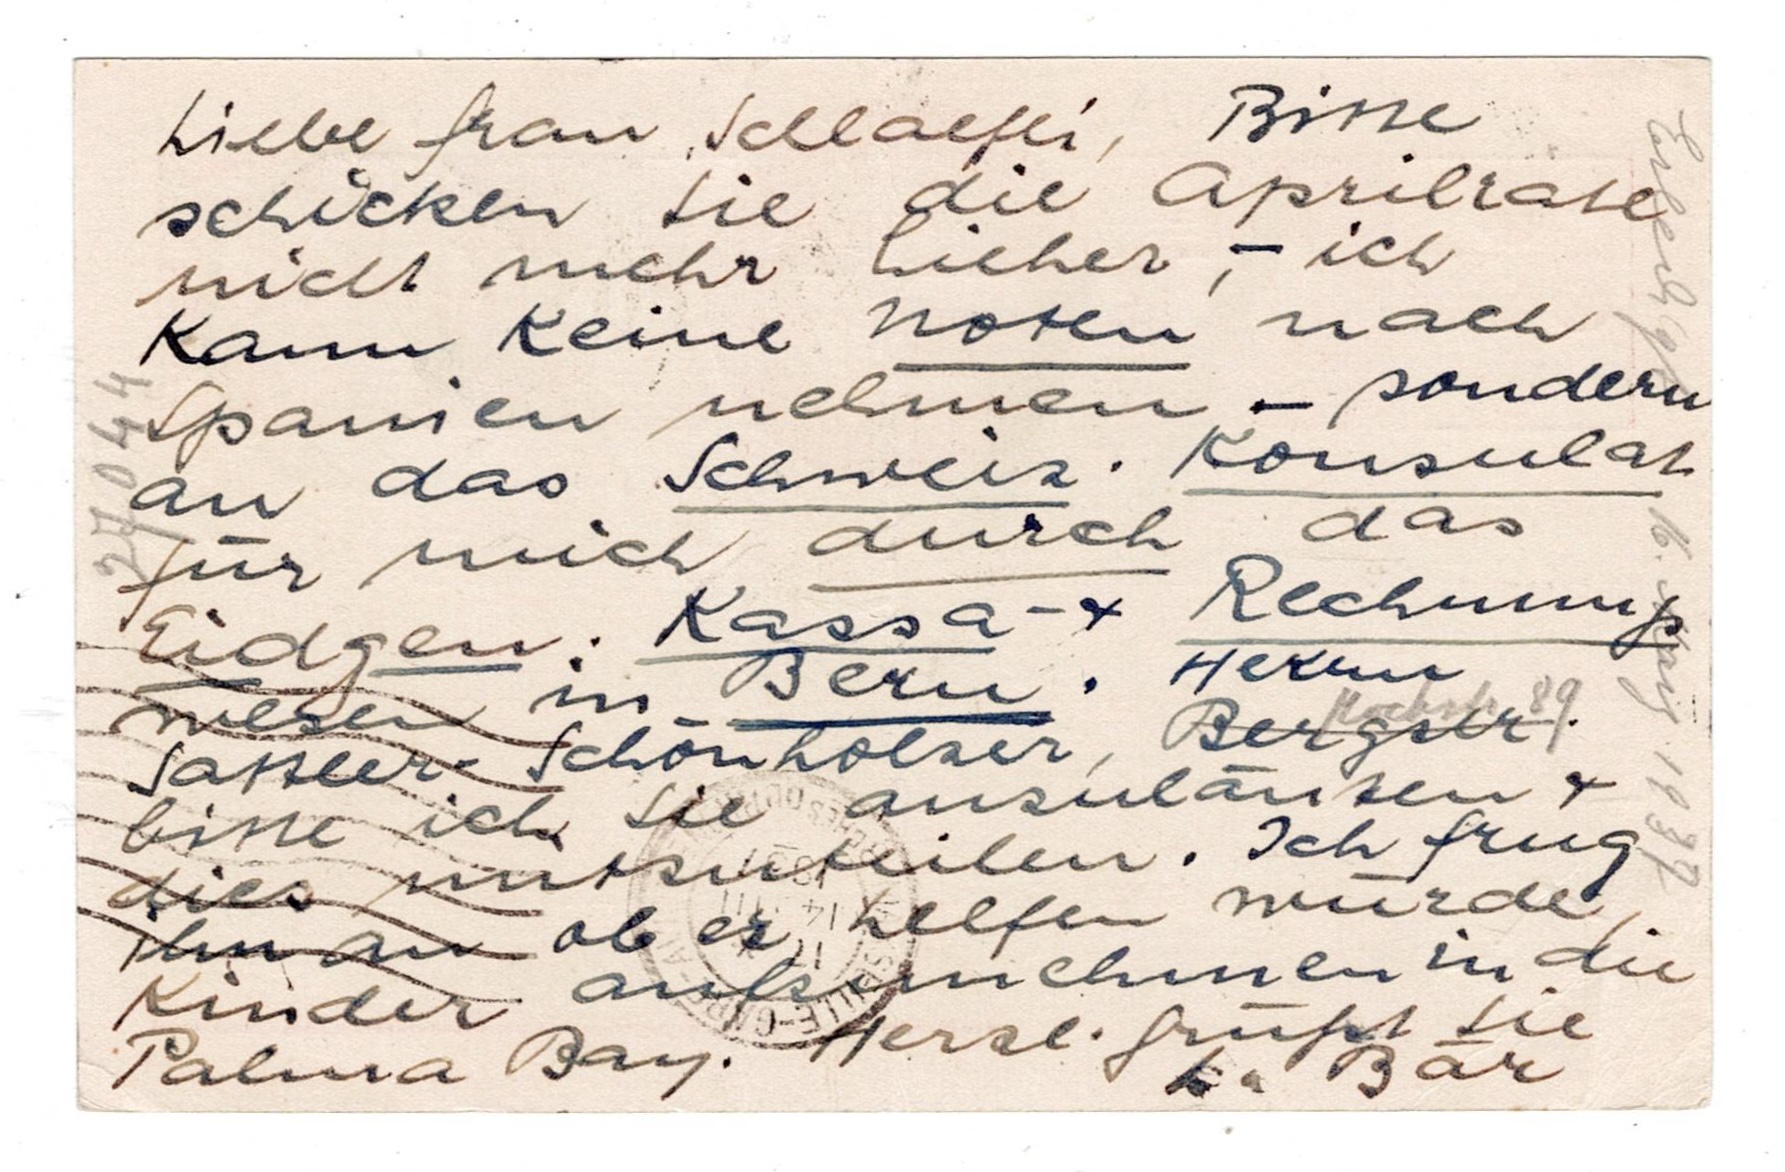 Liebe Frau Schlaefli, Bitte
schicken Sie die Aprilrate
nicht mehr hieher, – ich
kann keine Noten nach
Spanien nehmen – sondern
an das Schweiz. Konsulat
für mich durch das
Eidgen. Kassa- + Rechnungs
wesen in Bern. Herrn
Sattler-Schönholzer, Bergstr.
Hochstr. 89
bitte ich Sie anzuläuten +
dies mitzuteilen. Ich frug
ihn an ob er helfen würde,
Kinder aufzunehmen in die
Palma Bay. Herzl. grüsst Sie
L. Bär
27044
16. März 1937
MARSEILLE-GARE
14